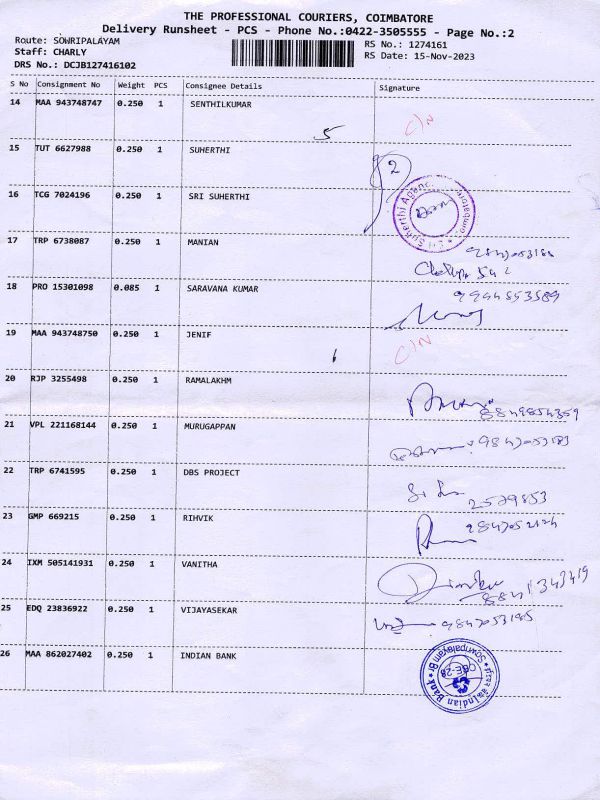 THE PROFESSIONAL COURIERS, COIMBATORE
Delivery Runsheet - PCS - Phone No.:0422-3505555 - Page No.:2
Route: SOWRIPALAYAM
RS No.: 1274161
Staff: CHARLY
RS Date: 15-Nov-2023
DRS No.: DCJB127416102
S No Consignment No Weight PCS Consignee Details Signature
14 MAA 943748747 0.250 1 SENTHILKUMAR
C/N
5
15 TUT 6627988 0.250 1 SUHERTHI
2
16 TCG 7024196 0.250 1 SRI SUHERTHI
Sri Suherthi Agenc
17 TRP 6738087 0.250 1 MANIAN
18 PRO 15301098 0.085 1 SARAVANA KUMAR
9944853589
19 MAA 943748750 0.250 1 JENIF
C/N
20 RJP 3255498 0.250 1 RAMALAKHM
8849854359
21 VPL 221168144 0.250 1 MURUGAPPAN
22 TRP 6741595 0.250 1 DBS PROJECT
2529853
23 GMP 669215 0.250 1 RIHVIK
24 IXM 505141931 0.250 1 VANITHA
25 EDQ 23836922 0.250 1 VIJAYASEKAR
26 MAA 862027402 0.250 1 INDIAN BANK
Indian Bank
Sowripalayam Br
CBE-28